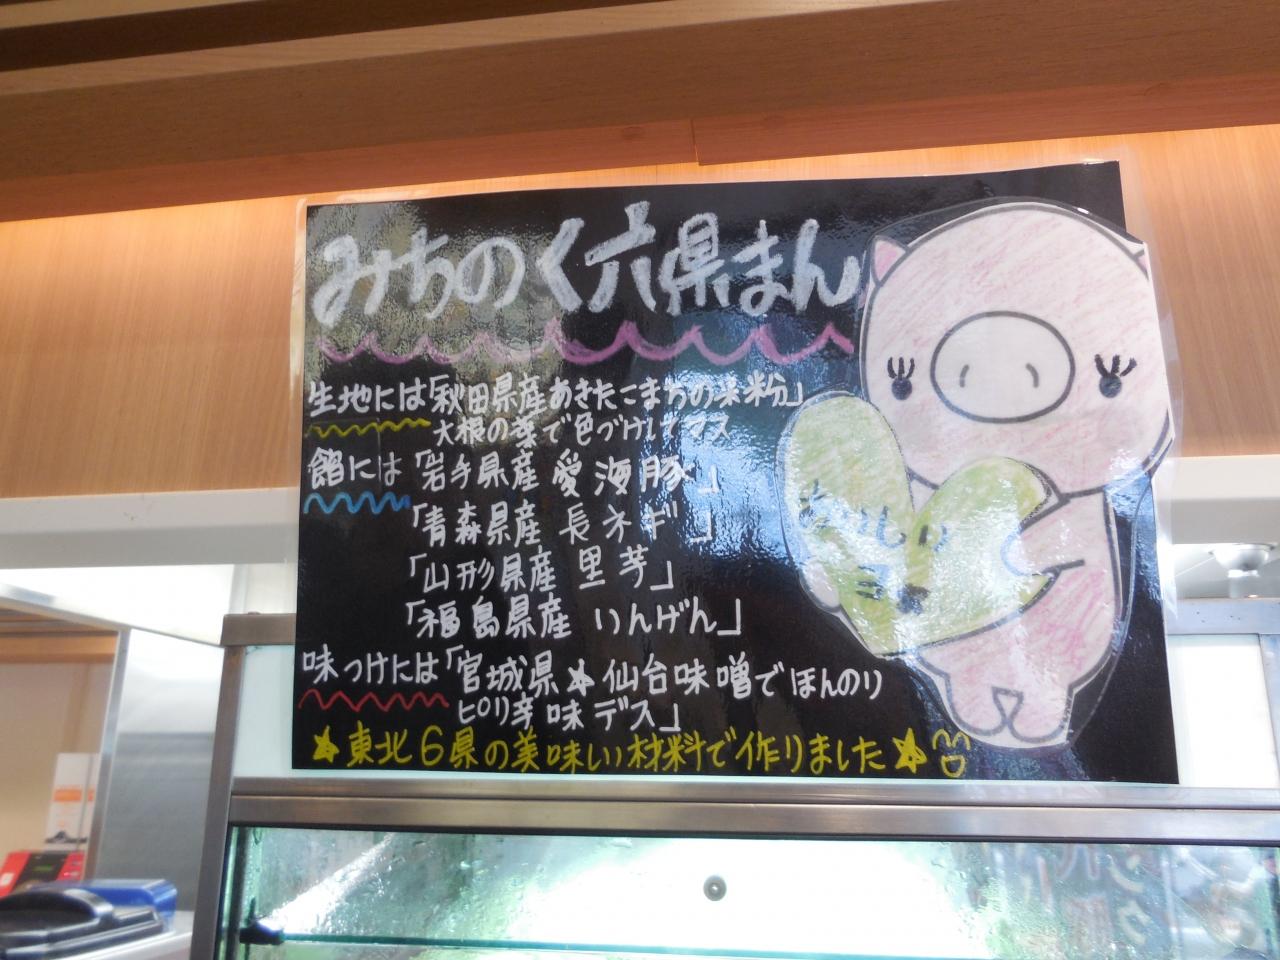 みちのく六県まん
生地には「秋田県産あきたこまちの米粉」
大根の葉で色づけしてマス
餡には「岩手県産 愛海豚」
「青森県産 長ネギ」
「山形県産 里芋」
「福島県産 いんげん」
味つけには「宮城県★仙台味噌でほんのり
ピリ辛味デス」
★東北6県の美味しい材料で作りました★
おいしい